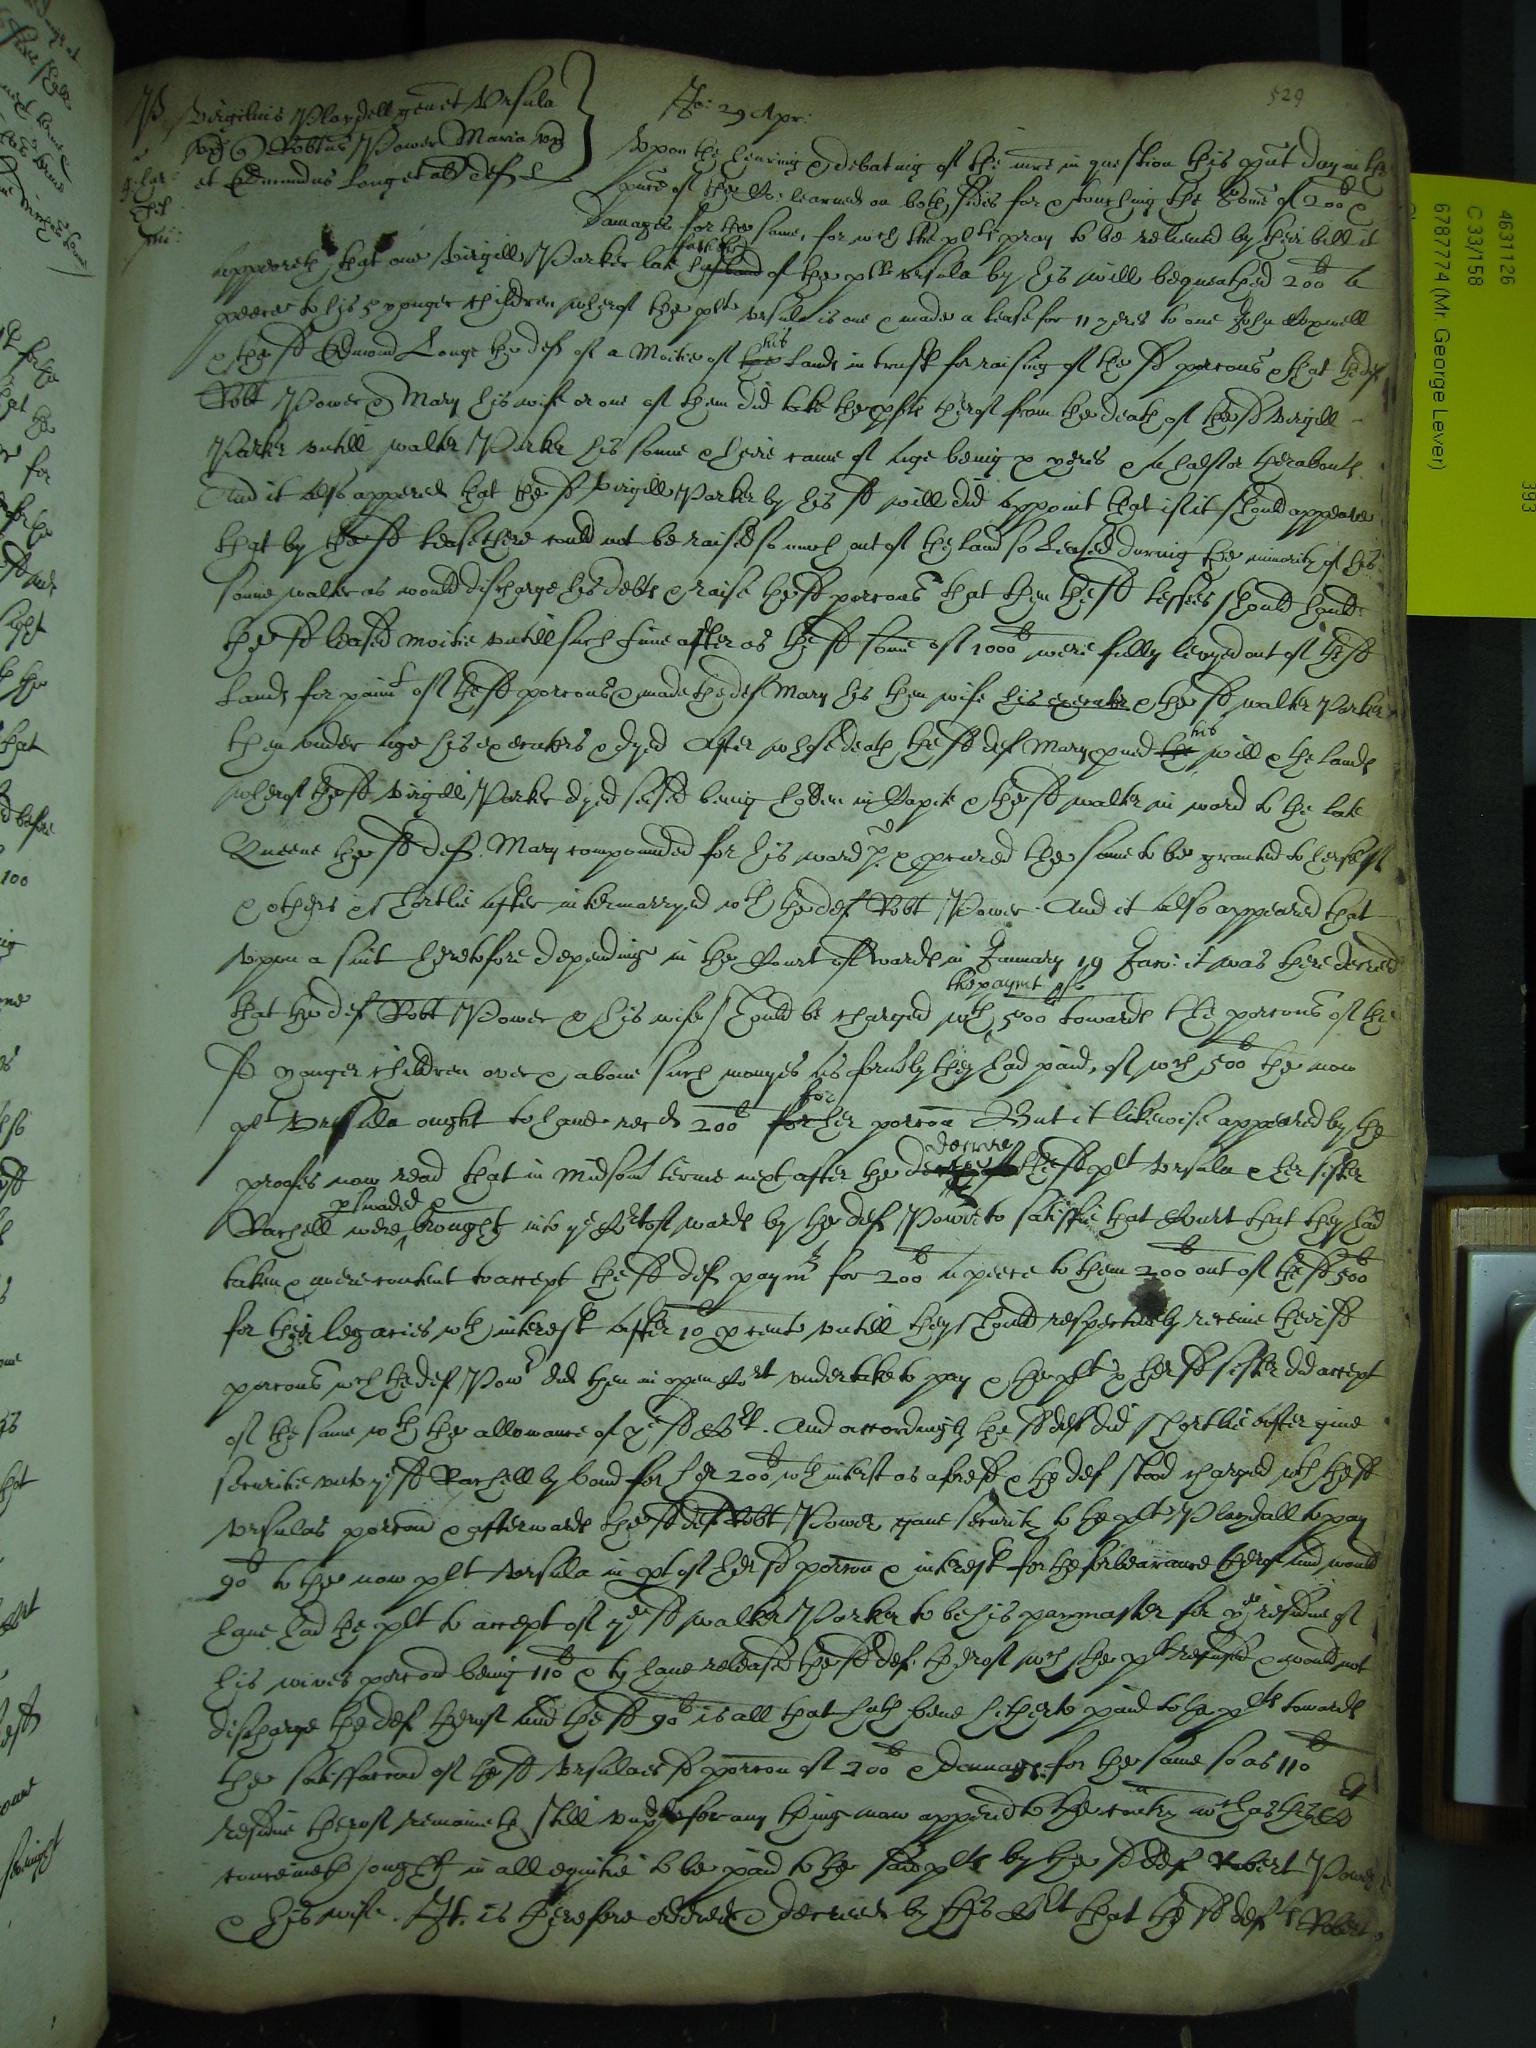 529
P Virgilius Pleydell gen et Ursula
ux Robtus Power Maria ux
et Edmundus Longe et al deft
Jo: 29 Apr:
Upon the hearing & debating of the mre in question this pnt day in the
pnce of the Co: learned on both sides for & touching the Some of 200li &
Damages for the same, for wch the plts pray to be relieved by their bill it
appeareth that one Virgill Parker late father of the plt Ursula by his will bequeathed 200li a
peece to his 5 yonger children wherof the plt Ursula is one & made a lease for 11 yeres to one John
& the sd Edmond Longe the deft of a Moitie of the his Lands in trust for raising of the sd porcons & that the deft
Robt Power & Mary his wife or one of them did take the pfits therof from the death of the sd Virgill
Parker untill Walter Parker his sonne & heire came of age being x yeres & a halfe or therabouts
And it also appered that the sd Virgill Parker by his sd will did appoint that if it should appeare
that by the sd lease there could not be raised so much out of the land so leased during the minority of his
sonne Walter as would discharge his debts & raise the sd porcons that then the sd lessees should hould
the sd leased moitie untill such time after as the sd some of 1000li were fully levyed out of the sd
Lands for paimt of the sd porcons & made the deft Mary his then wife his executor & the sd Walter Parker
then under age his executors & dyed After whose death the sd deft Mary pved the his will & the lands
wherof the sd Virgill Parker dyed seised being holden in Capite & the sd Walter in ward to the late
Queene the sd deft Mary compounded for his wardp & procured the same to be granted to herself
& others & shortlie after intermarryed wth the deft Robt Power. And it also appeared that
upon a suit heretofore depending in the Court of Wards in January 19 Jaco: it was there decreed
that the deft Robt Power & his wife should be charged wth the paymt of 500li towards the porcons of the
sd yonger children over & above such monyes as formerly they had paid, of wch 500li the now
plt Ursula ought to have recd 200li for her porcon But it likewise appeared by the
proofes now read that in Midsom terme next after the decree the sd plt Ursula & her sister
Rachell were pswaded & brought into ye Court of wards by the deft Power to satisfie that Court that they had
taken & were content to accept the sd deft paymr for 200li a peece to them 200 out of the sd 500li
for their legacies wth interest after 10li p cent untill they should respectively receive their sd
porcons wch the deft Power did then in open Cort undertake to pay & the plt & her sd sister did accept
of the same wth the allowance of ye sd Cort. And accordingly the sd deft did shortlie after give
securitie unto ye sd Rachell by bond for her 200li wth interst as aforesd & the deft stood charged wth the sd
Ursulas porcon & afterwards the sd deft Robt Power gave security to the plt Pleydall to pay
90li to the now plt Ursula in pt of her sd porcon & interest for the forbearance therof and would
have had the plt to accept of ye sd Walter Parker to be his paymaster for ye residue of
his wives porcon being 110li & to have released the sd deft therof wch the plt refused & would not
discharge the deft therof And the sd 90li is all that hath bene hitherto paid to the plts towards
the satisfaccon of the sd Ursulaes sd porcon of 200li & Damages for the same so as 110li
residue therof remaineth still unpd for any thing now appering to the contry wch as this Co
conceiveth ought in all equitie to be paid to the said plts by the sd deft Robert Power
& his wife. It is therefore ordred & decreed by this Cort that the sd defts Robert
4631126
C 33/158
6787774 (Mr. George Lever)
393